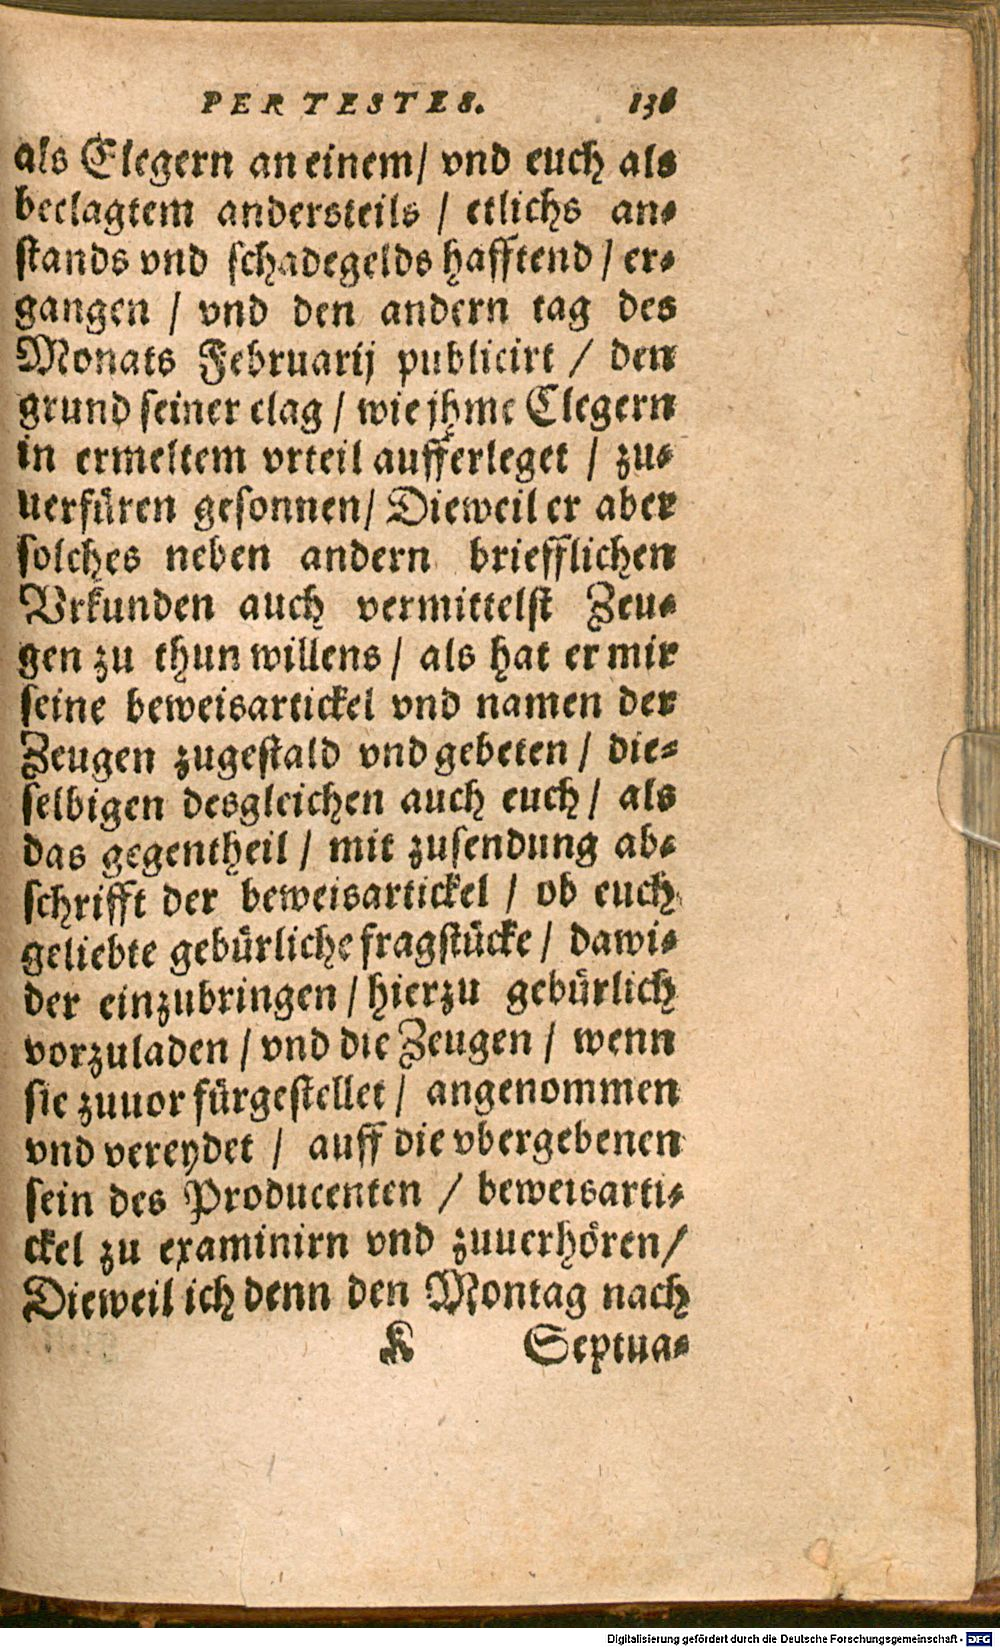 PER TESTES. 136
als Clegern an einem/ vnd euch als
beclagtem andersteils / etlichs an⸗
stands vnd schadegelds hafftend / er⸗
gangen / vnd den andern tag des
Monats Februarij publicirt / den
grund seiner clag / wie jhme Clegern
in ermeltem vrteil aufferleget / zu⸗
uerfüren gesonnen/ Dieweil er aber
solches neben andern briefflichen
Vrkunden auch vermittelst Zeu⸗
gen zu thun willens / als hat er mir
seine beweisartickel vnd namen der
Zeugen zugestald vnd gebeten / die⸗
selbigen desgleichen auch euch / als
das gegentheil / mit zusendung ab⸗
schrifft der beweisartickel / ob euch
geliebte gebürliche fragstücke / dawi⸗
der einzubringen / hierzu gebürlich
vorzuladen / vnd die Zeugen / wenn
sie zuuor fürgestellet / angenommen
vnd vereydet / auff die vbergebenen
sein des Producenten / beweisarti⸗
ckel zu examinirn vnd zuuerhören /
Dieweil ich denn den Montag nach
K Septua⸗
Digitalisierung gefördert durch die Deutsche Forschungsgemeinschaft - DFG